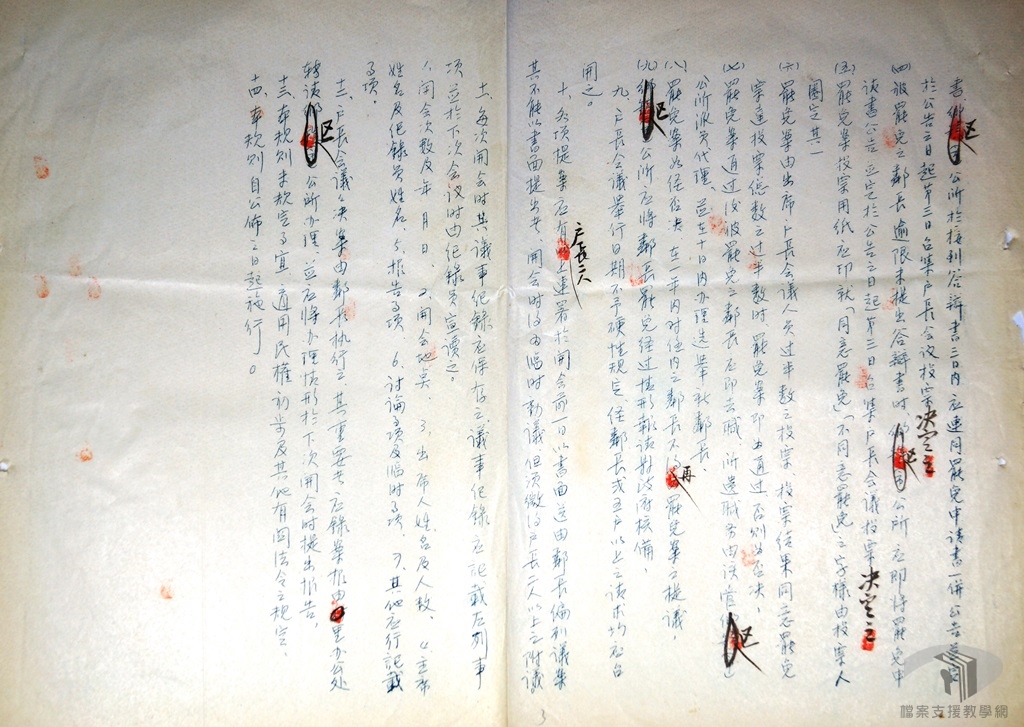 公所於接到答辯書三日內应連同罷免申請書一併公告並定
於公告之日起第三日召集戶長会议投票決定之
(四)被罷免之鄰長逾限未提出答辯書时区公所应即将罷免申
請書公告並定於公告之日起第三日召集戶長会議投票決定之
(五)罷免案投票用紙应印就「同意罷免」「不同意罷免」之字樣由投票人
圈定其一
(六)罷免案由出席戶長会議人員过半数之投票投票結果同意罷免
票達投票總数之过半数时、罷免案即为通过否則为否決、
(七)罷免案通过後被罷免之鄰長应即去職所遺職务由該管区
公所派員代理、並在十日內办理選舉新鄰長、
(八)罷免案如經否決在一年內对任內之鄰長不得再罷免案之提議、
(九)区公所应将鄰長罷免經过情形報請縣政府核備、
九、戶長会議舉行日期不予硬性規定經鄰長或五戶以上之請求均应召
開之。
十、各項提案应有戶長二人連署於開会前一日以書面送由鄰長编列議案
其不能以書面提出者、開会时得为臨时動議、但須徵得戶長二人以上之附議
十一、每次開会时其議事紀錄应保存之議事紀錄应記載左列事
項並於下次会议时由紀錄員宣讀之。
1、開会次数及年月日、2、開会地点、3、出席人姓名及人数、4、主席
姓名及紀錄員姓名、5、报告事項、6、討論事項及臨时事項、7、其他应行記載
事項、
十二、戶長会議之決案由鄰長执行之其重要者应錄案报由里办公处
轉請区公所办理、並应将办理情形於下次開会时提出报告、
十三、本規則未規定事宜適用民權初步及其他有関法令之規定、
十四、本規則自公佈之日起施行。
3
檔案支援教學網